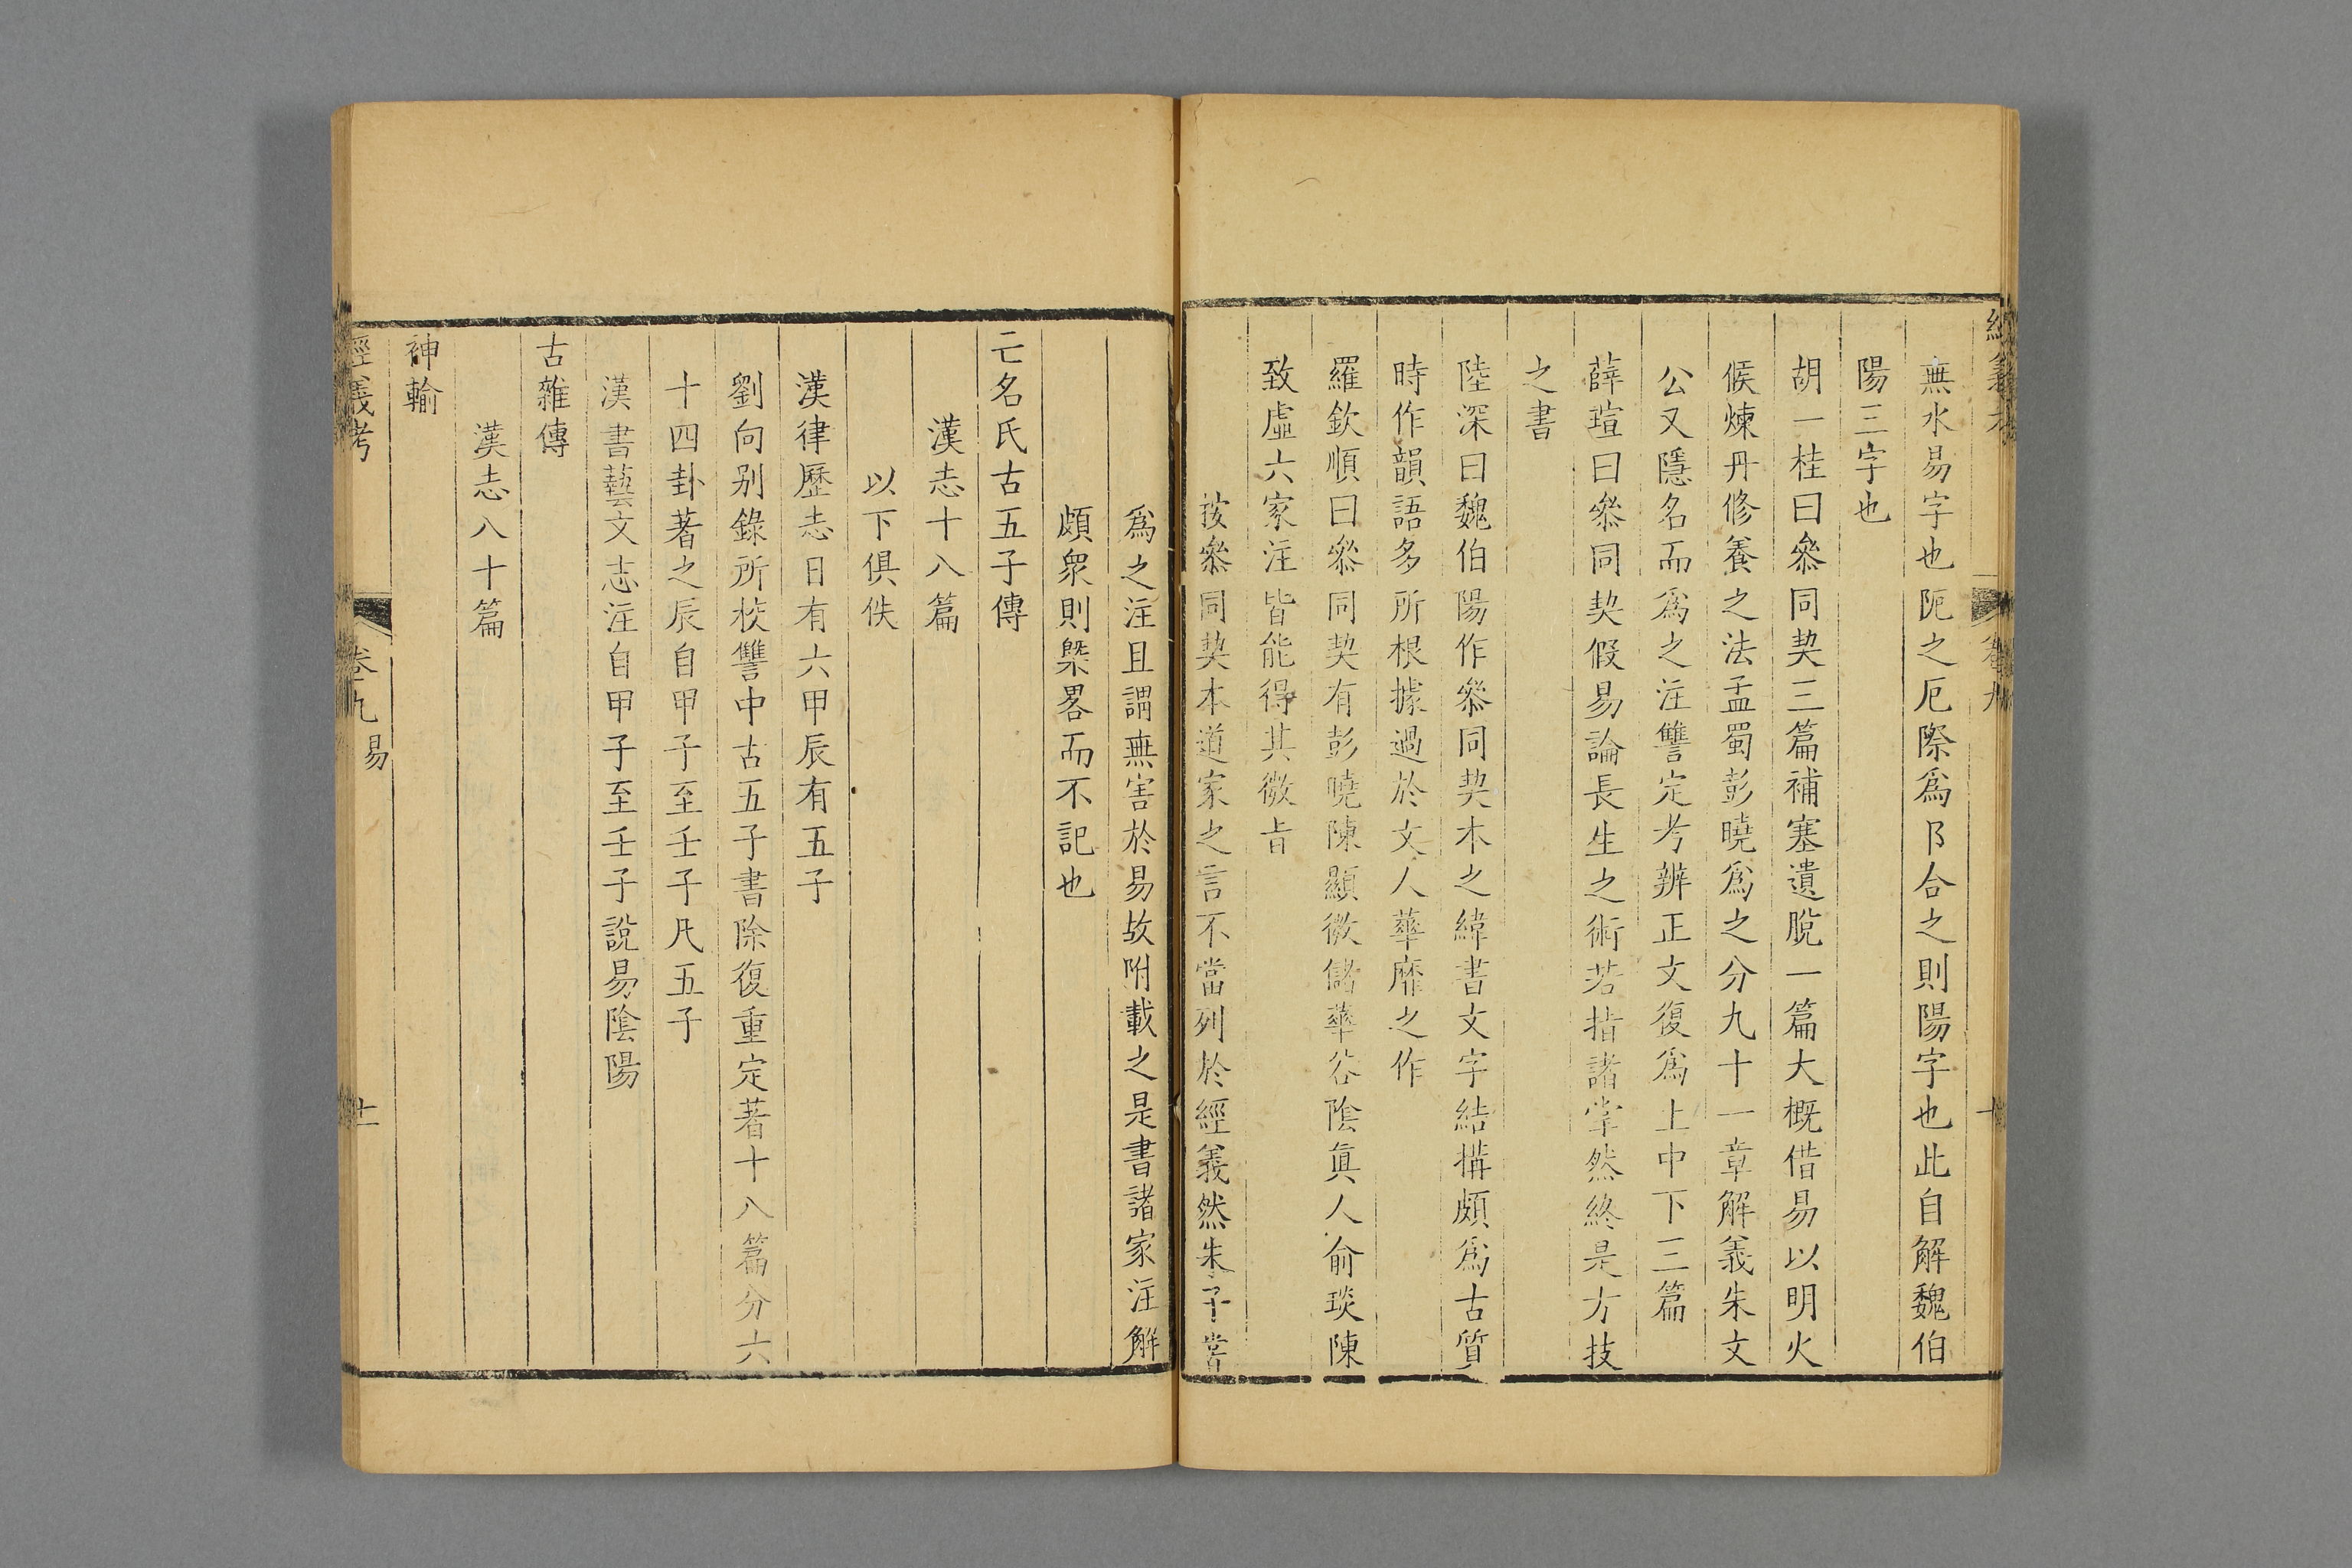 無水易字也阨之厄際爲阝合之則陽字也此自解魏伯
陽三字也
胡一桂曰參同契三篇補塞遺脫一篇大槪借易以明火
候煉丹修養之法孟蜀彭曉爲之分九十一章解義朱文
公又隱名而爲之注讐定考辨正文復爲上中下三篇
薛瑄曰參同契假易論長生之術若指諸掌然終是方技
之書
陸深曰魏伯陽作參同契本之緯書文字結搆頗爲古質
時作韻語多所根據過於文人華靡之作
羅欽順曰參同契有彭曉陳顯微儲華谷陰眞人俞琰陳
致虛六家注皆能得其微旨
按參同契本道家之言不當列於經義然朱子嘗
爲之注且謂無害於易故附載之是書諸家注解
頗衆則槩畧而不記也
亡名氏古五子傳
漢志十八篇
以下俱佚
漢律歷志日有六甲辰有五子
劉向别錄所校讐中古五子書除復重定著十八篇分六
十四卦著之辰自甲子至壬子凡五子
漢書藝文志注自甲子至壬子說易陰陽
古雜傳
漢志八十篇
神輸
經義考
卷九
易
十一